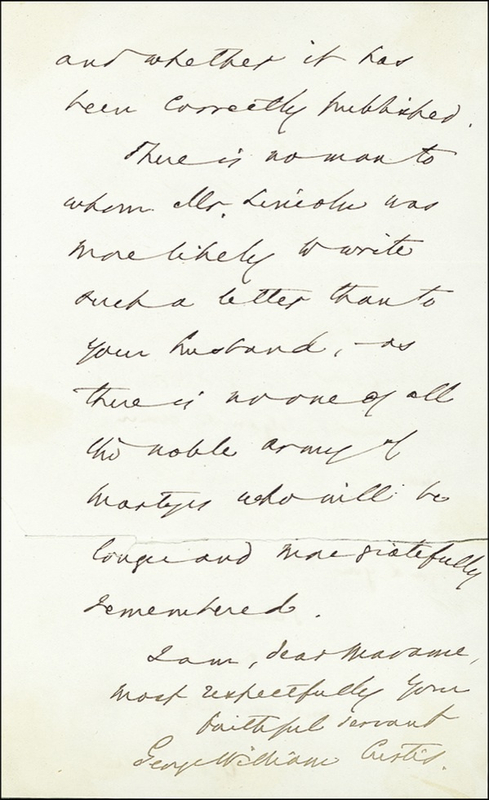 and whether it has
been correctly published.
There is no man to
whom Mr. Lincoln was
more likely to write
such a letter than to
your husband, – as
there is no one of all
the noble army of
martyrs who will be
longer and more gratefully
remembered.
I am, dear Madame,
most respectfully your
faithful servant
George William Curtis.